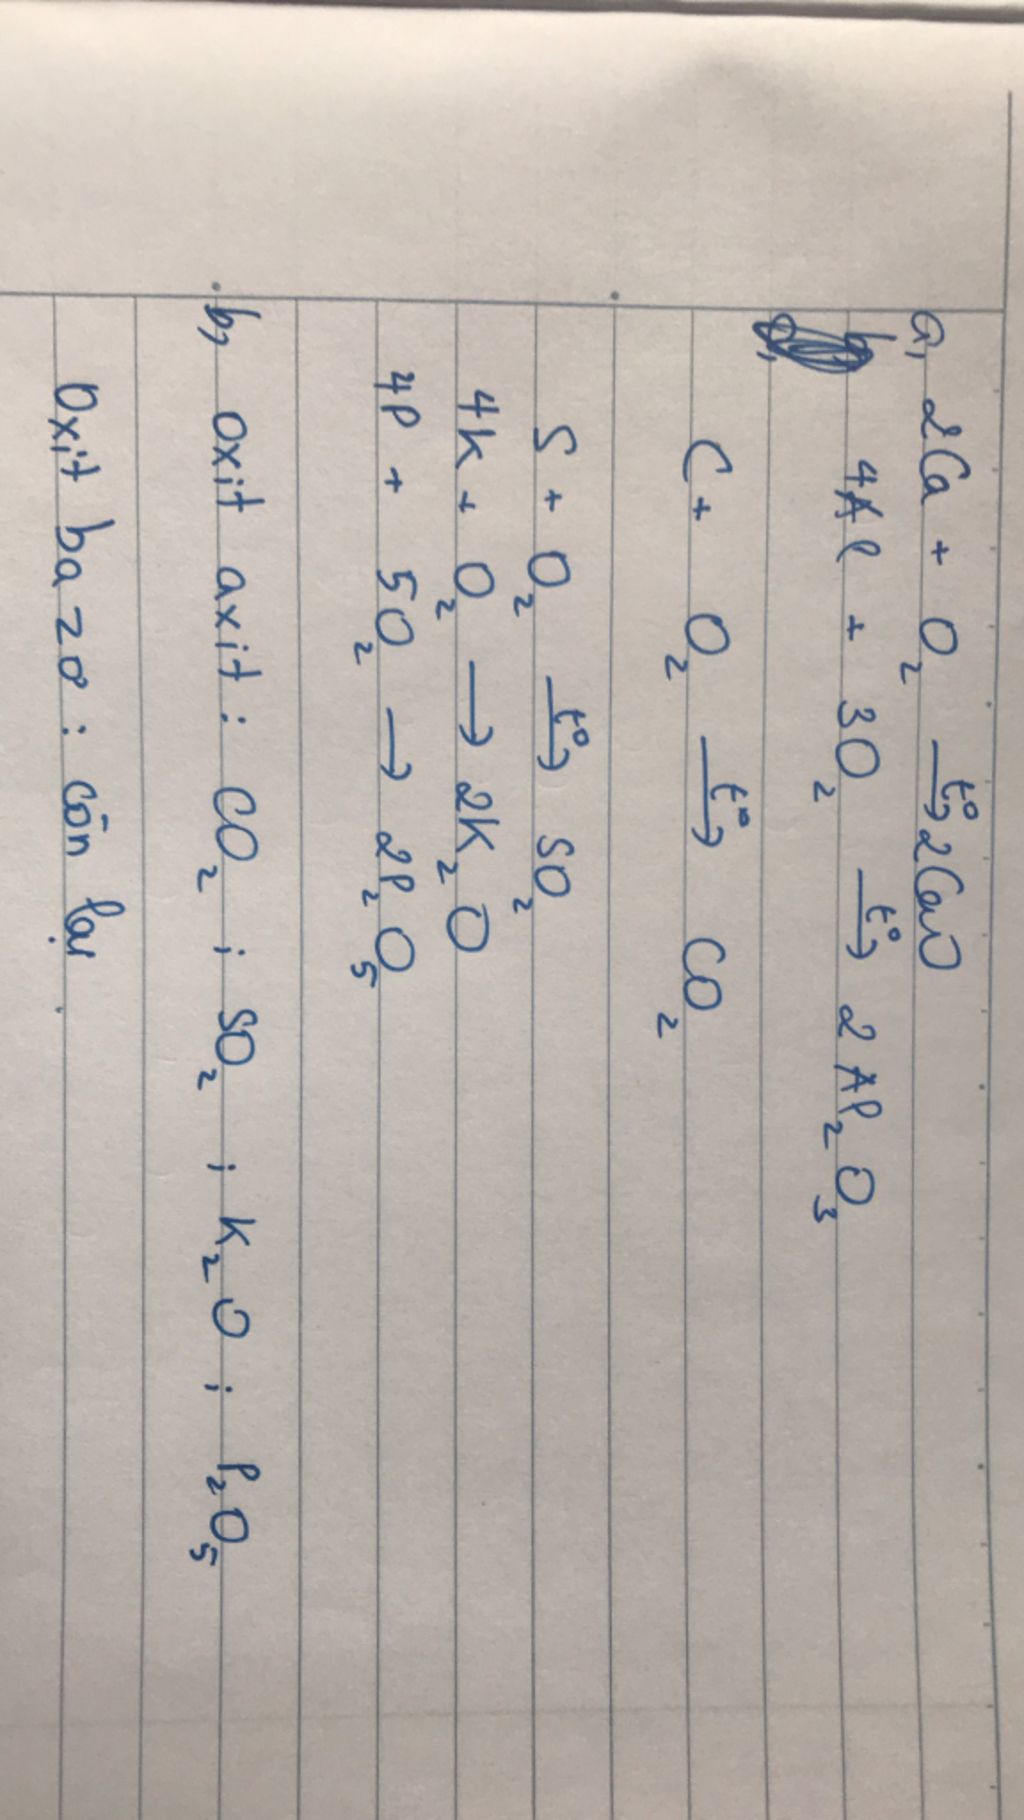 a, 2Ca + O₂ —t°→ 2CaO
4Al + 3O₂ —t°→ 2Al₂O₃
C + O₂ —t°→ CO₂
S + O₂ —t°→ SO₂
4K + O₂ → 2K₂O
4P + 5O₂ → 2P₂O₅
b, Oxit axit : CO₂ ; SO₂ ; K₂O ; P₂O₅
Oxit bazơ : còn lại.